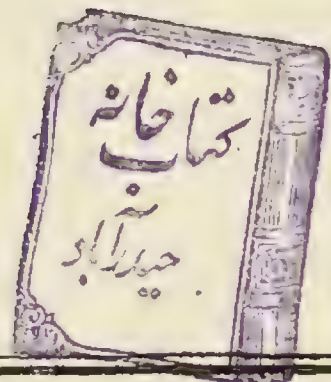 کتاب خانه
حیدرآباد